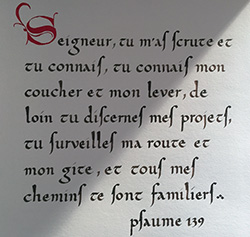 Seigneur, tu m'as scruté et
tu connais, tu connais mon
coucher et mon lever, de
loin tu discernes mes projets,
tu surveilles ma route et
mon gîte, et tous mes
chemins te sont familiers..
psaume 139